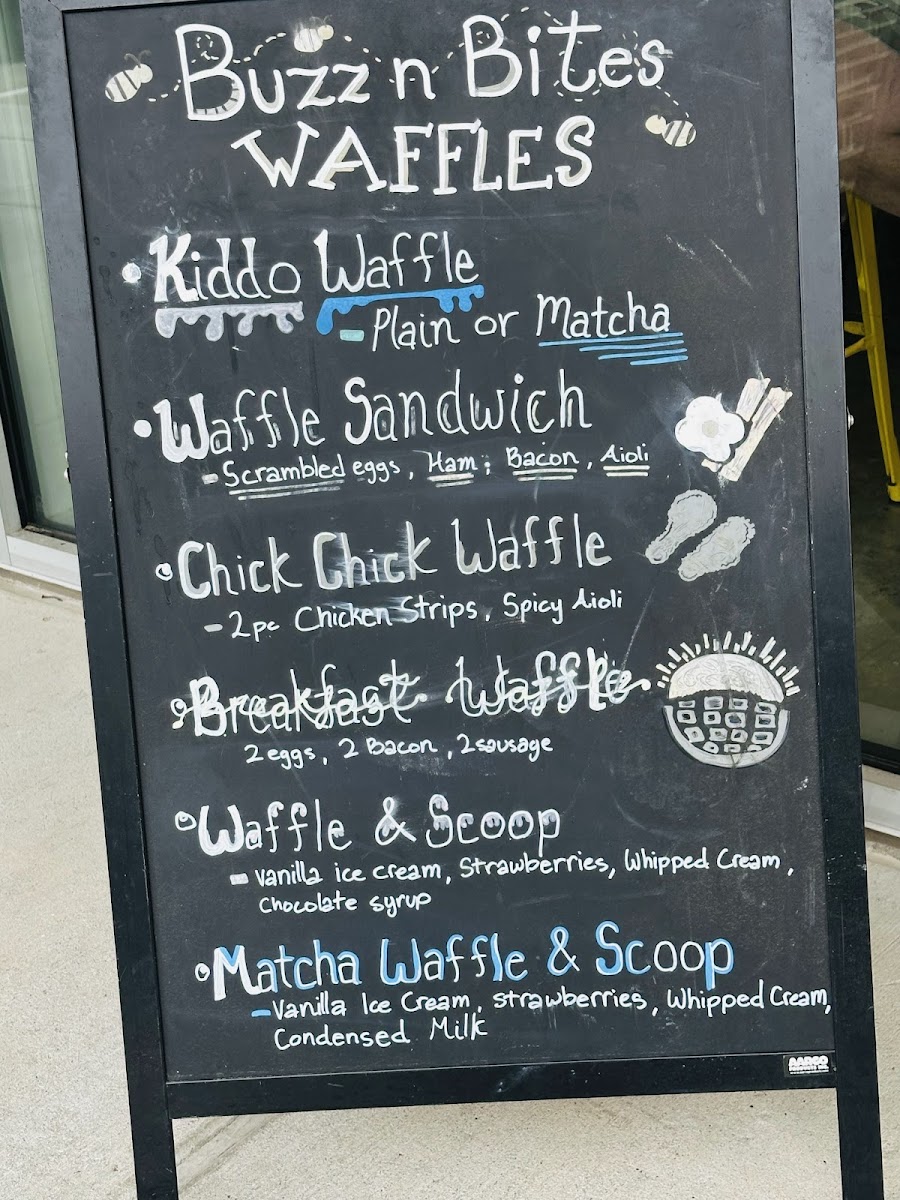 Buzz n Bites
WAFFLES
Kiddo Waffle
- Plain or Matcha
Waffle Sandwich
- Scrambled eggs, Ham, Bacon, Aioli
Chick Chick Waffle
- 2pc Chicken Strips, Spicy Aioli
Breakfast Waffle
2 eggs, 2 Bacon, 2 sausage
Waffle & Scoop
- vanilla ice cream, Strawberries, Whipped Cream,
Chocolate syrup
Matcha Waffle & Scoop
- Vanilla Ice Cream, strawberries, Whipped Cream,
Condensed Milk
AARCO
PRODUCTS INC.